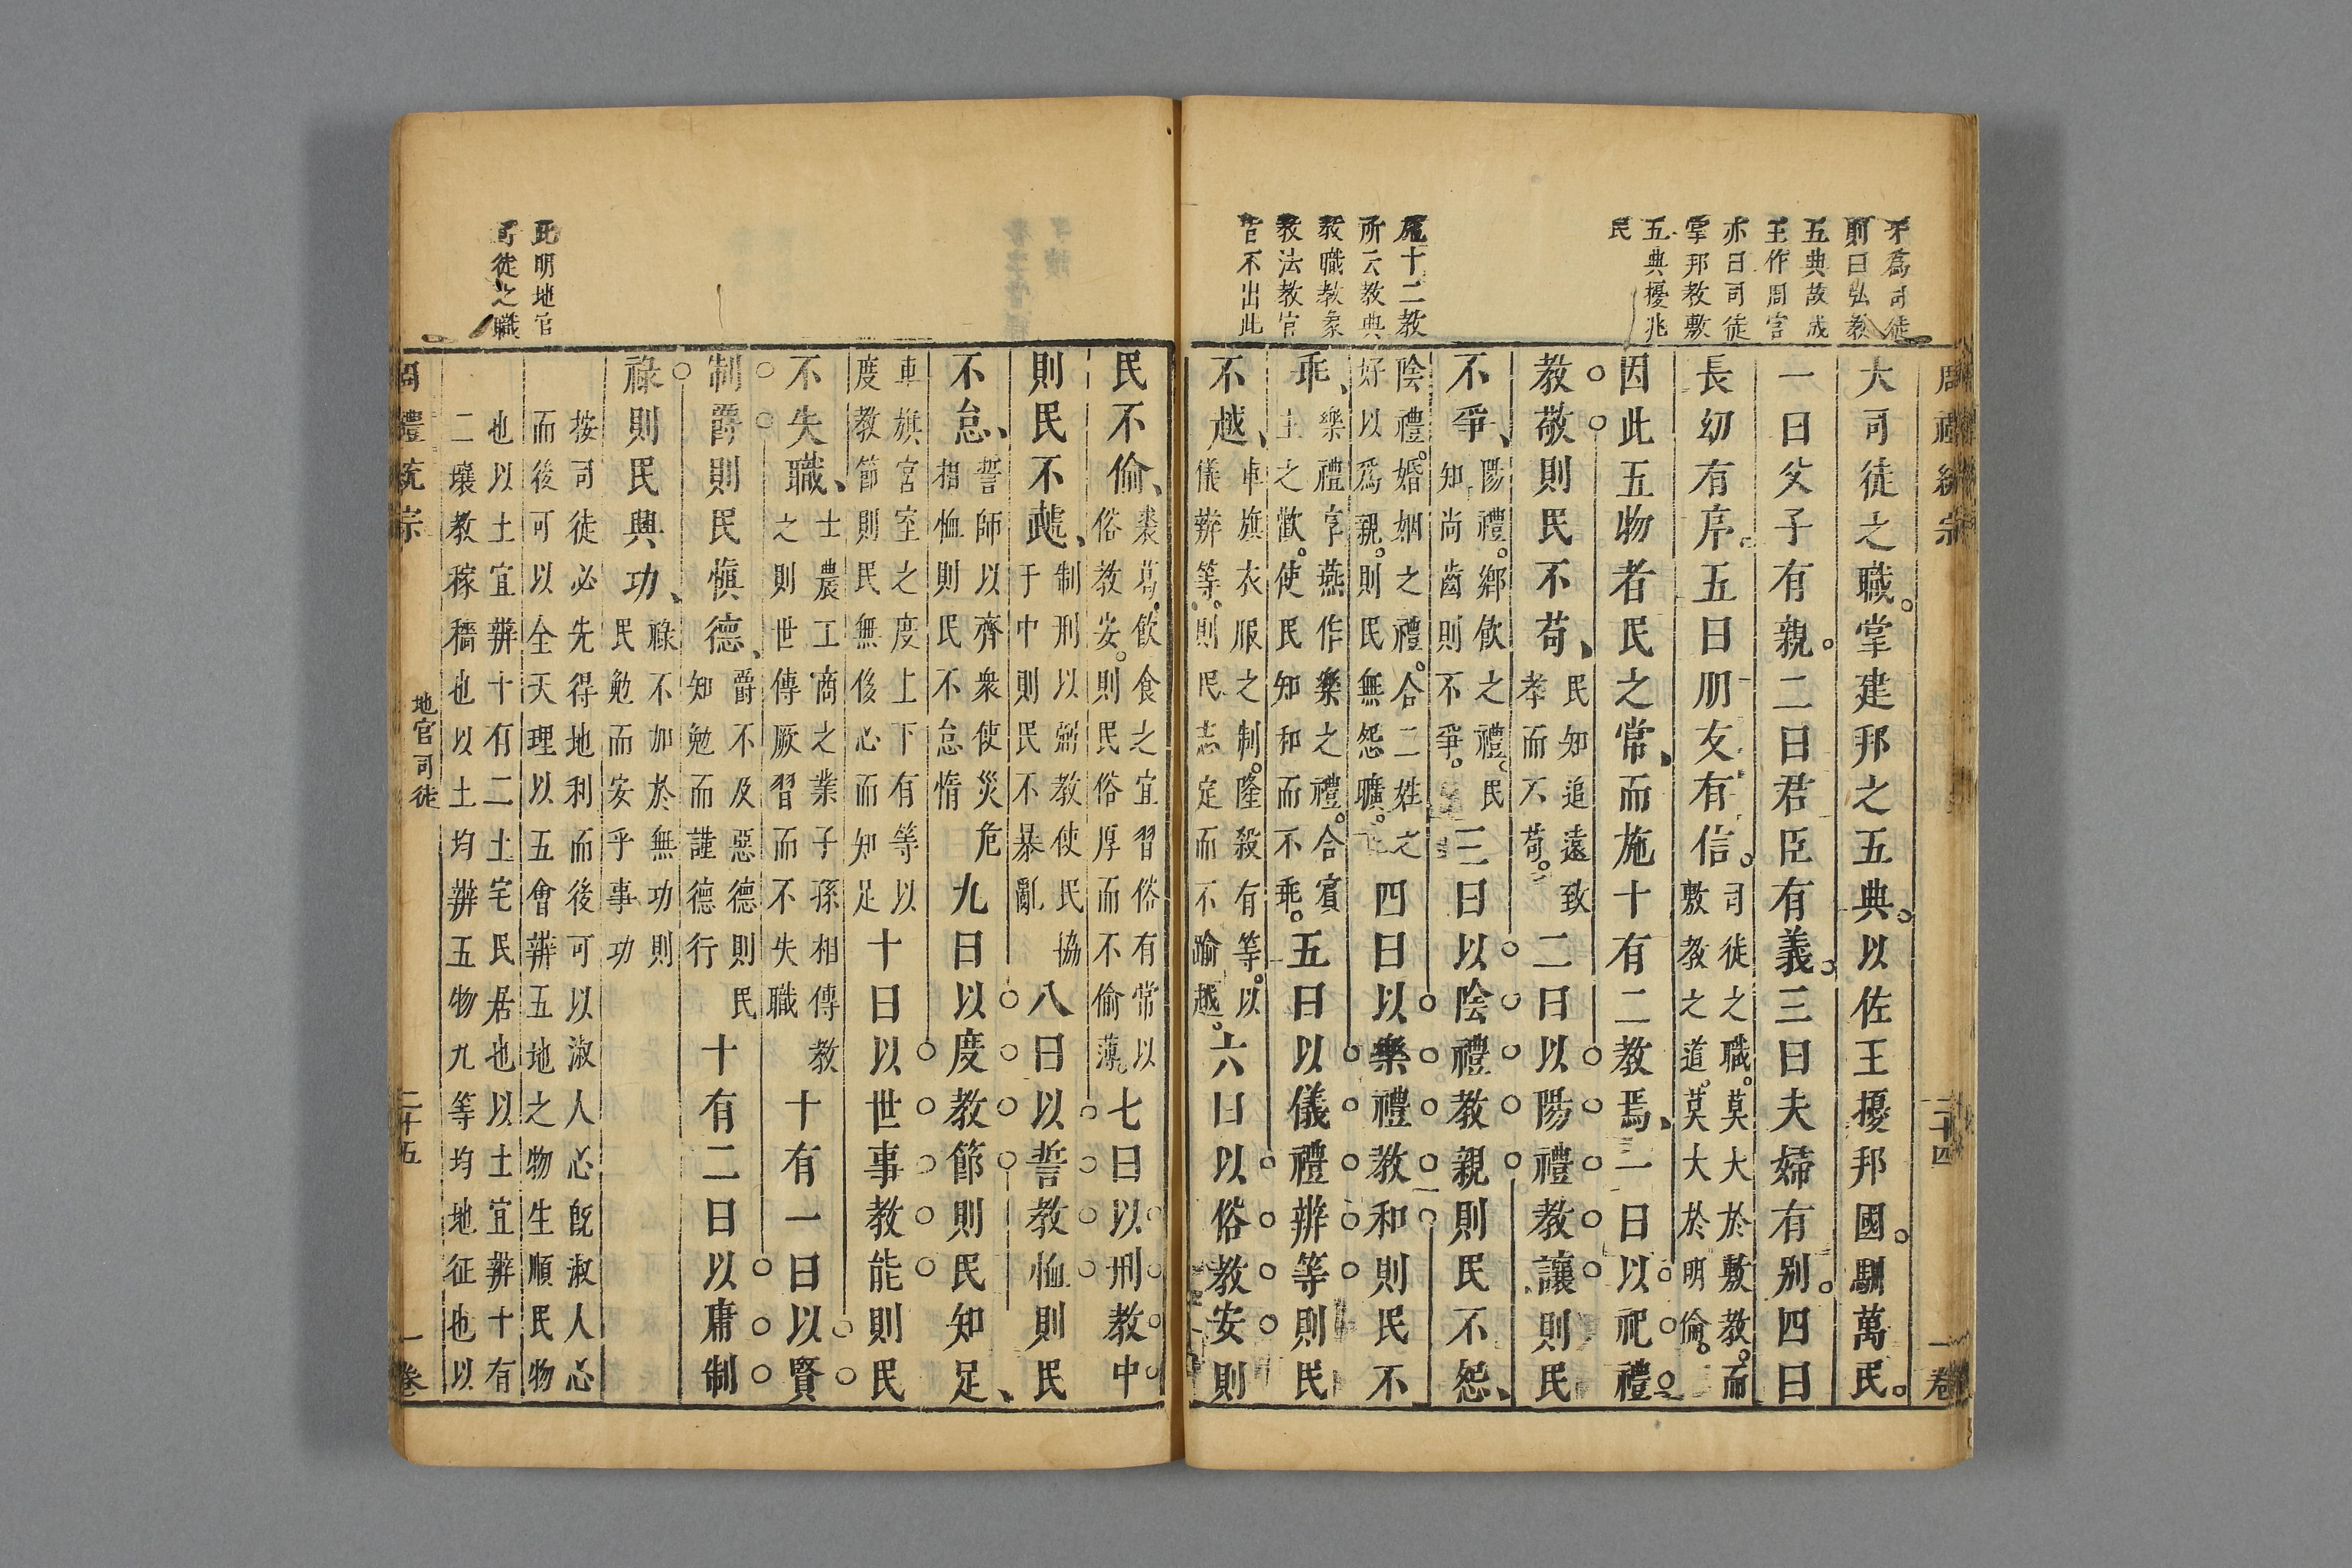 爲司徒
則曰弘敷
五典故成
王作周官
亦曰司徒
掌邦教敷
五典擾兆
民
施十二教
所云教典
教職教象
教法教官
皆不出此
周禮統宗 二十四 一卷
大司徒之職。掌建邦之五典。以佐王擾邦國。馴萬民。
一曰父子有親。二曰君臣有義。三曰夫婦有别。四曰
長幼有序。五曰朋友有信。司徒之職。莫大於敷教。而敷教之道。莫大於明倫。
因此五物者民之常、而施十有二教焉、一曰以祀禮
教敬則民不苟、民知追遠致孝而不苟。二曰以陽禮教讓則民
不爭、陽禮。鄉飲之禮。民知尚齒則不爭。三曰以陰禮教親則民不怨、
陰禮。婚姻之禮。合二姓之好以爲親。則民無怨曠。四曰以樂禮教和則民不
乖、樂禮官燕作樂之禮。合賓主之歡。使民知和而不乖。五曰以儀禮辨等則民
不越、車旗衣服之制。隆殺有等。以儀辨等。則民志定而不踰越。六曰以俗教安則
民不偷、裘葛。飲食之宜習俗有常以俗教安。則民俗厚而不偷薄。七曰以刑教中
則民不虣、制刑以弼教使民協于中則民不暴亂 八曰以誓教恤則民
不怠、誓師以齊衆使災危相恤則民不怠惰 九曰以度教節則民知足、
車旗宮室之度上下有等以度教節則民無侈心而知足 十曰以世事教能則民
不失職、士農工商之業子孫相傳教之則世傳厥習而不失職 十有一曰以賢
制爵則民慎德、爵不及惡德則民知勉而謹德行 十有二曰以庸制
祿則民興功、祿不加於無功則民勉而安乎事功
按司徒必先得地利而後可以淑人心旣淑人心
而後可以全天理以五會辨五地之物生順民物
也以土宜辨十有二土宅民居也以土宜辨十有
二壤教稼穡也以土均辨五物九等均地征也以
周禮統宗 地官司徒 二十五 一卷
此明地官
司徒之職